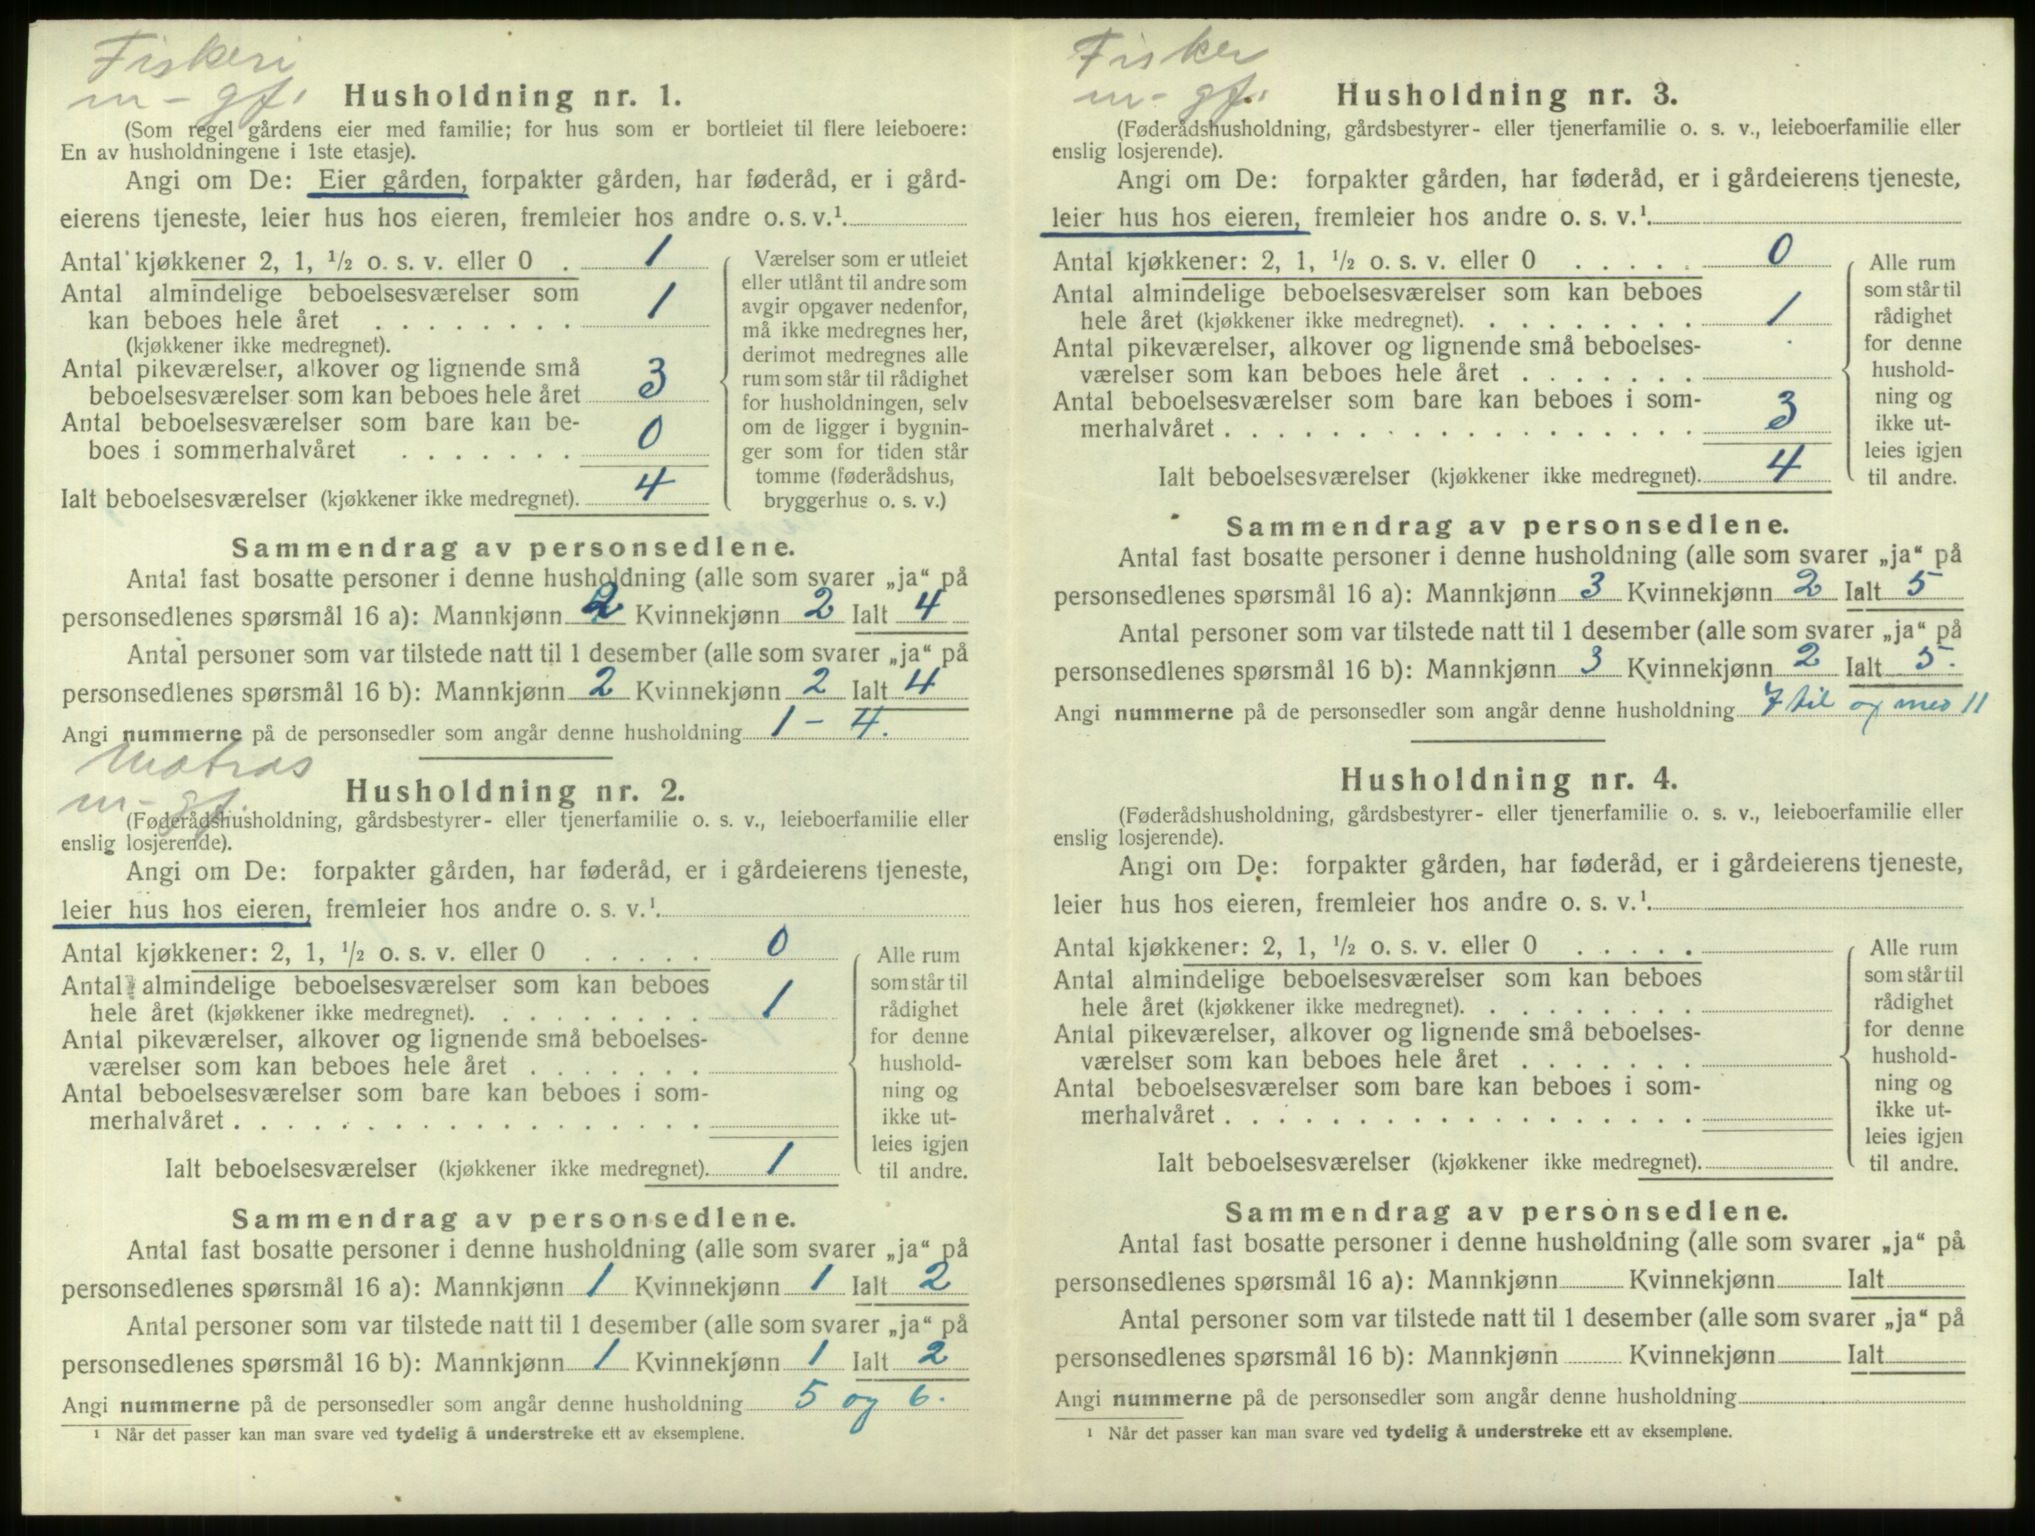 Fiskeri
m - gf.
Husholdning nr. 1.
(Som regel gårdens eier med familie; for hus som er bortleiet til flere leieboere:
En av husholdningene i 1ste etasje).
Angi om De: Eier gården, forpakter gården, har føderåd, er i gård-
eierens tjeneste, leier hus hos eieren, fremleier hos andre o. s. v.¹.
Antal kjøkkener 2, 1, ½ o. s. v. eller 0 . 1
Antal almindelige beboelsesværelser som
kan beboes hele året . . . . . . . . 1
(kjøkkener ikke medregnet).
Antal pikeværelser, alkover og lignende små
beboelsesværelser som kan beboes hele året 3
Antal beboelsesværelser som bare kan be-
boes i sommerhalvåret . . . . . . . 0
Ialt beboelsesværelser (kjøkkener ikke medregnet). 4
Værelser som er utleiet
eller utlånt til andre som
avgir opgaver nedenfor,
må ikke medregnes her,
derimot medregnes alle
rum som står til rådighet
for husholdningen, selv
om de ligger i bygnin-
ger som for tiden står
tomme (føderådshus,
bryggerhus o. s. v.)
Sammendrag av personsedlene.
Antal fast bosatte personer i denne husholdning (alle som svarer „ja“ på
personsedlenes spørsmål 16 a): Mannkjønn 2 Kvinnekjønn 2 Ialt 4
Antal personer som var tilstede natt til 1 desember (alle som svarer „ja“ på
personsedlenes spørsmål 16 b): Mannkjønn 2 Kvinnekjønn 2 Ialt 4
Angi nummerne på de personsedler som angår denne husholdning 1 - 4.
Matros
m - gf.
Husholdning nr. 2.
(Føderådshusholdning, gårdsbestyrer- eller tjenerfamilie o. s. v., leieboerfamilie eller
enslig losjerende).
Angi om De: forpakter gården, har føderåd, er i gårdeierens tjeneste,
leier hus hos eieren, fremleier hos andre o. s. v.¹.
Antal kjøkkener: 2, 1, ½ o. s. v. eller 0 . . . . . 0
Antal almindelige beboelsesværelser som kan beboes
hele året (kjøkkener ikke medregnet). . . . . . . . . 1
Antal pikeværelser, alkover og lignende små beboelses-
værelser som kan beboes hele året . . . . . . .
Antal beboelsesværelser som bare kan beboes i som-
merhalvåret . . . . . . . . . . . . . . . . . .
Ialt beboelsesværelser (kjøkkener ikke medregnet). 1
Alle rum
som står til
rådighet
for denne
hushold-
ning og
ikke ut-
leies igjen
til andre.
Sammendrag av personsedlene.
Antal fast bosatte personer i denne husholdning (alle som svarer „ja“ på
personsedlenes spørsmål 16 a): Mannkjønn 1 Kvinnekjønn 1 Ialt 2
Antal personer som var tilstede natt til 1 desember (alle som svarer „ja“ på
personsedlenes spørsmål 16 b): Mannkjønn 1 Kvinnekjønn 1 Ialt 2
Angi nummerne på de personsedler som angår denne husholdning 5 og 6.
¹ Når det passer kan man svare ved tydelig å understreke ett av eksemplene.
Fisker
m - gf.
Husholdning nr. 3.
(Føderådshusholdning, gårdsbestyrer- eller tjenerfamilie o. s. v., leieboerfamilie eller
enslig losjerende).
Angi om De: forpakter gården, har føderåd, er i gårdeierens tjeneste,
leier hus hos eieren, fremleier hos andre o. s. v.¹.
Antal kjøkkener: 2, 1, ½ o. s. v. eller 0 . . . . . 0
Antal almindelige beboelsesværelser som kan beboes
hele året (kjøkkener ikke medregnet). . . . . . . . . 1
Antal pikeværelser, alkover og lignende små beboelses-
værelser som kan beboes hele året . . . . . . .
Antal beboelsesværelser som bare kan beboes i som-
merhalvåret . . . . . . . . . . . . . . . . . . 3
Ialt beboelsesværelser (kjøkkener ikke medregnet). 4
Alle rum
som står til
rådighet
for denne
hushold-
ning og
ikke ut-
leies igjen
til andre.
Sammendrag av personsedlene.
Antal fast bosatte personer i denne husholdning (alle som svarer „ja“ på
personsedlenes spørsmål 16 a): Mannkjønn 3 Kvinnekjønn 2 Ialt 5
Antal personer som var tilstede natt til 1 desember (alle som svarer „ja“ på
personsedlenes spørsmål 16 b): Mannkjønn 3 Kvinnekjønn 2 Ialt 5.
Angi nummerne på de personsedler som angår denne husholdning 7 til og med 11
Husholdning nr. 4.
(Føderådshusholdning, gårdsbestyrer- eller tjenerfamilie o. s. v., leieboerfamilie eller
enslig losjerende).
Angi om De: forpakter gården, har føderåd, er i gårdeierens tjeneste,
leier hus hos eieren, fremleier hos andre o. s. v.¹.
Antal kjøkkener: 2, 1, ½ o. s. v. eller 0 . . . . .
Antal almindelige beboelsesværelser som kan beboes
hele året (kjøkkener ikke medregnet). . . . . . . . .
Antal pikeværelser, alkover og lignende små beboelses-
værelser som kan beboes hele året . . . . . . .
Antal beboelsesværelser som bare kan beboes i som-
merhalvåret . . . . . . . . . . . . . . . . . .
Ialt beboelsesværelser (kjøkkener ikke medregnet).
Alle rum
som står til
rådighet
for denne
hushold-
ning og
ikke ut-
leies igjen
til andre.
Sammendrag av personsedlene.
Antal fast bosatte personer i denne husholdning (alle som svarer „ja“ på
personsedlenes spørsmål 16 a): Mannkjønn Kvinnekjønn Ialt
Antal personer som var tilstede natt til 1 desember (alle som svarer „ja“ på
personsedlenes spørsmål 16 b): Mannkjønn Kvinnekjønn Ialt
Angi nummerne på de personsedler som angår denne husholdning
¹ Når det passer kan man svare ved tydelig å understreke ett av eksemplene.